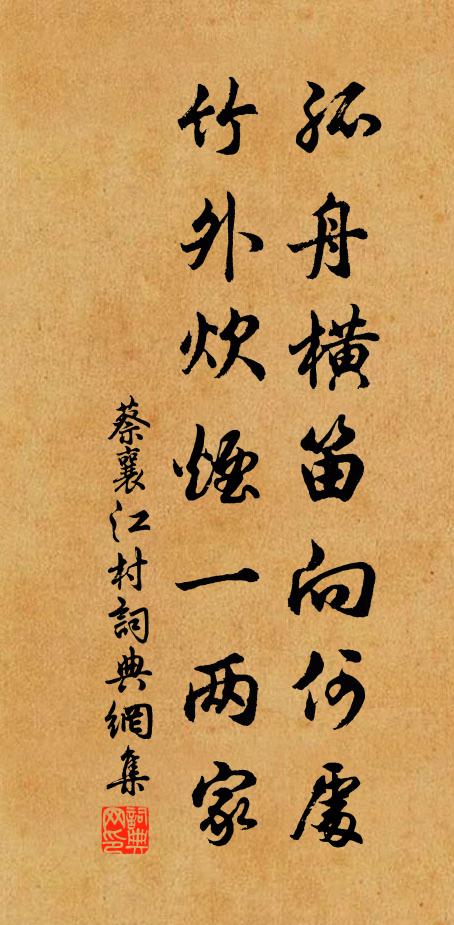 孤舟橫笛向何處
竹外炊煙一两家
蔡襄江村詞典網集
詞典网印